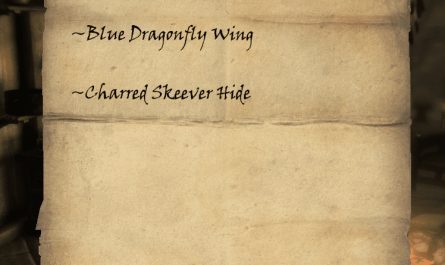 ~Blue Dragonfly Wing
~Charred Skeever Hide